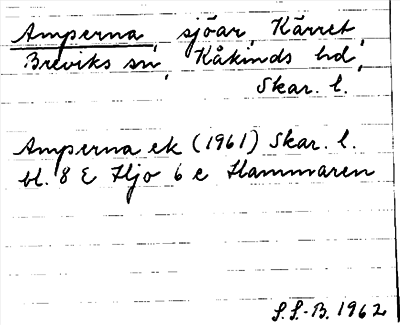 Amperna, sjöar, Kärret,
Breviks sn, Kåkinds hd,
Skar. l.
Amperna ek (1961) Skar. l.
bl. 8 E Hjo 6 e Hammaren
S.S.-B. 1962